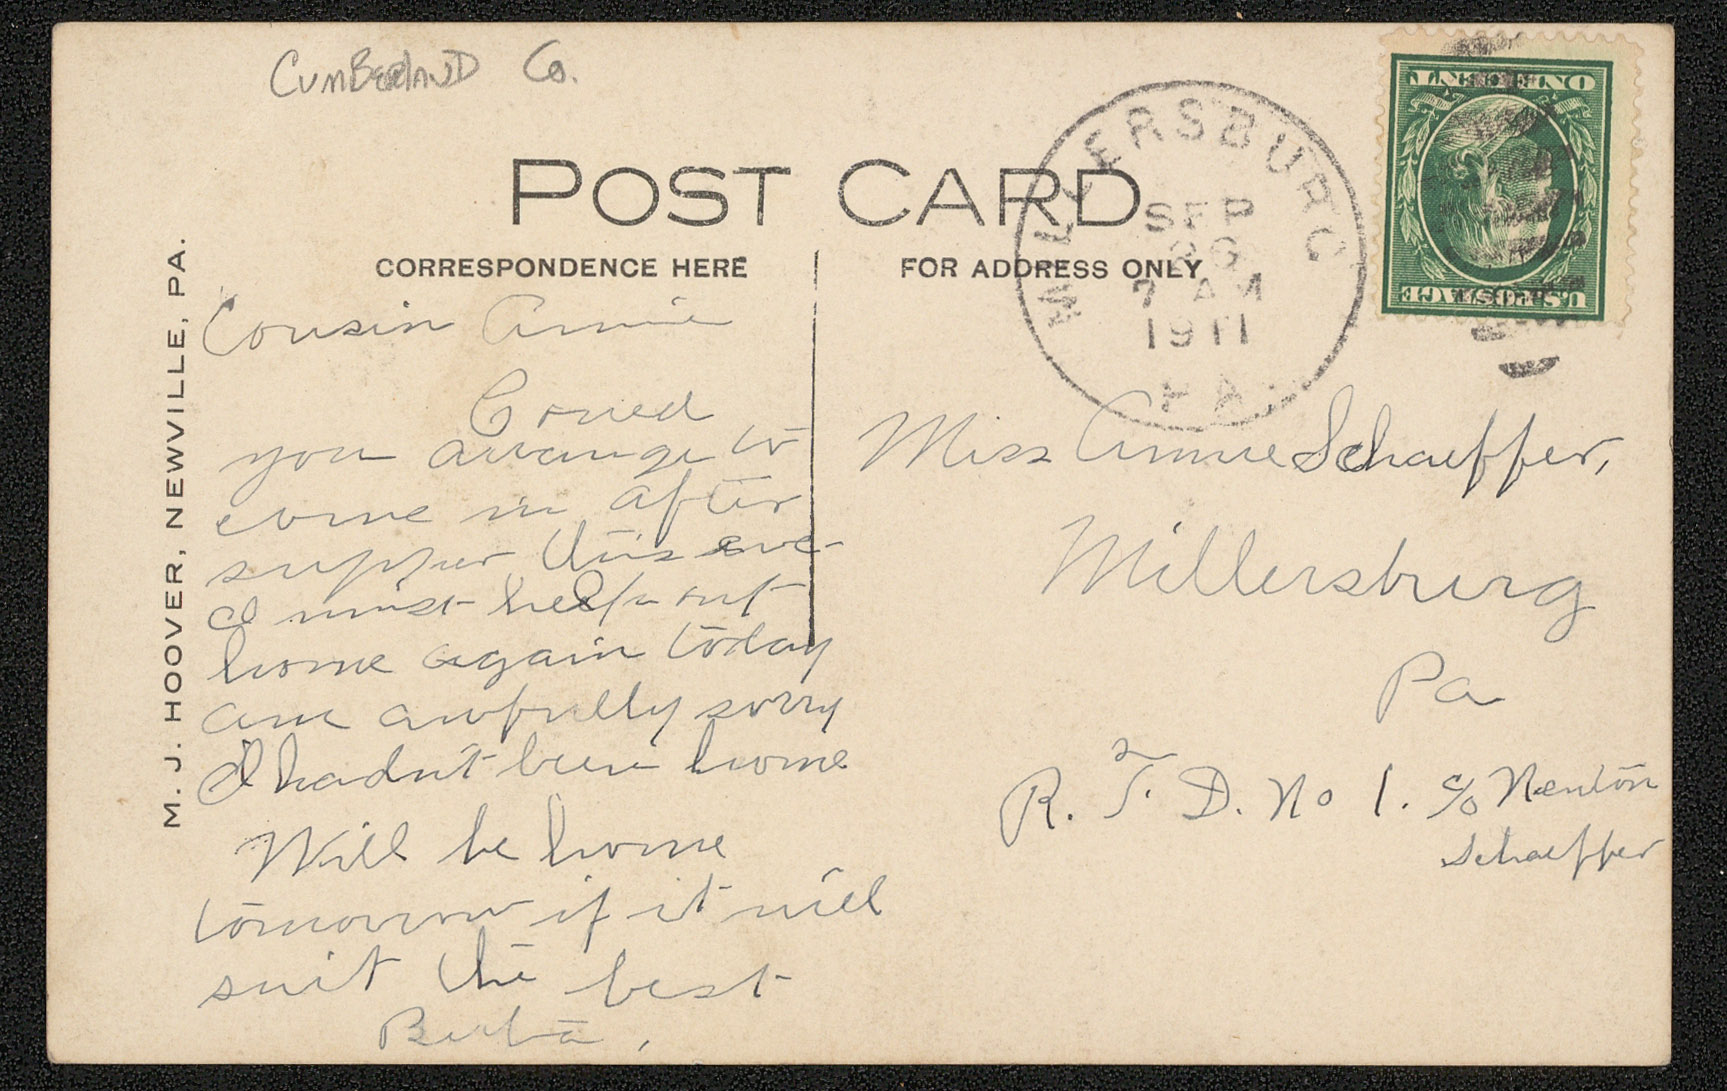 Cumberland Co.
POST CARD
CORRESPONDENCE HERE
FOR ADDRESS ONLY
M. J. HOOVER, NEWVILLE, PA.
MILLERSBURG
SEP
26
7 AM
1911
PA.
ONE CENT
U.S. POSTAGE
Cousin Annie
Coued
you arrange to
come in after
supper this eve
I must help out
home again today
am awfully sorry
I hadn't been home
Will be home
tomorrow if it will
suit the best
Berta,
Miss Annie Schaeffer,
Millersburg
Pa
R. F. D. No 1. c/o Newton
Schaeffer